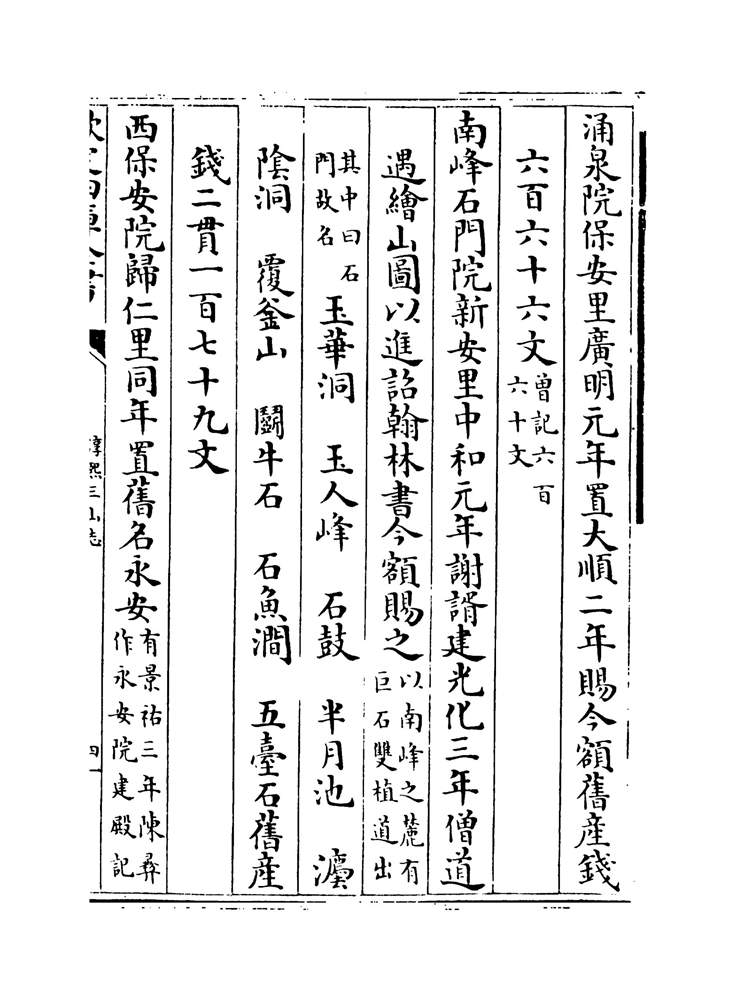 涌泉院保安里廣明元年置大順二年賜今額舊産錢
六百六十六文曽記六百六十文
南峰石門院新安里中和元年謝諝建光化三年僧道
遇繪山圖以進詔翰林書今額賜之以南峰之麓有巨石雙植道出
其中曰石門故名玉華洞 玉人峰 石鼓 半月池 瀍
陰洞 覆釜山 鬭牛石 石魚澗 五臺石舊産
錢二貫一百七十九文
西保安院歸仁里同年置舊名永安有景祐三年陳彛作永安院建殿記
淳熙三山志